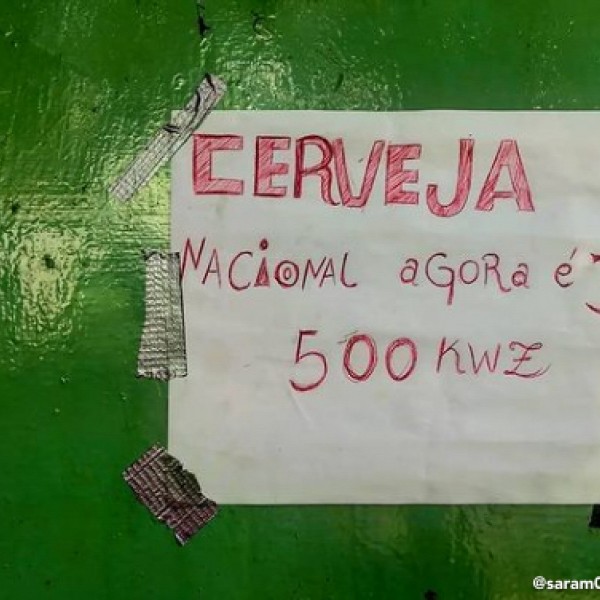 CERVEJA
NACIONAL AGORA é
500 KWZ